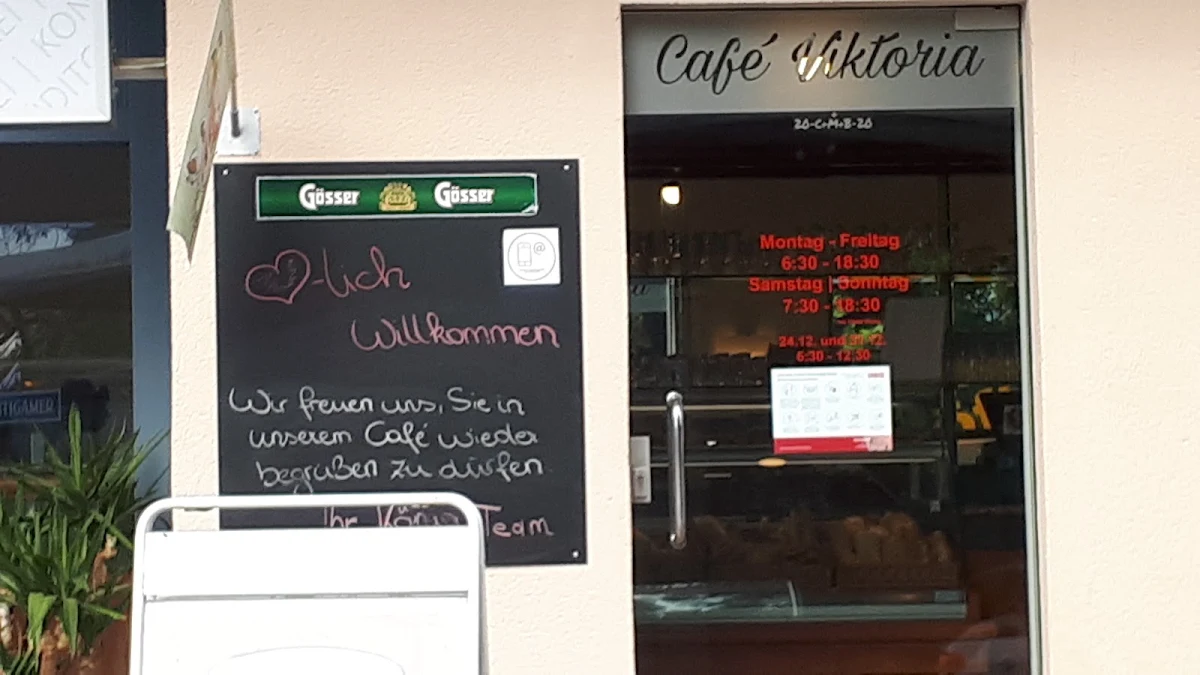 Gösser Gösser
-lich
Willkommen
Wir freuen uns, Sie in
unserem Café wieder
begrüßen zu dürfen
Ihr König Team
Café Viktoria
20-C+M+B-20
Montag - Freitag
6:30 - 18:30
Samstag | Sonntag
7:30 - 18:30
24.12. und 31.12.
6:30 - 12:30